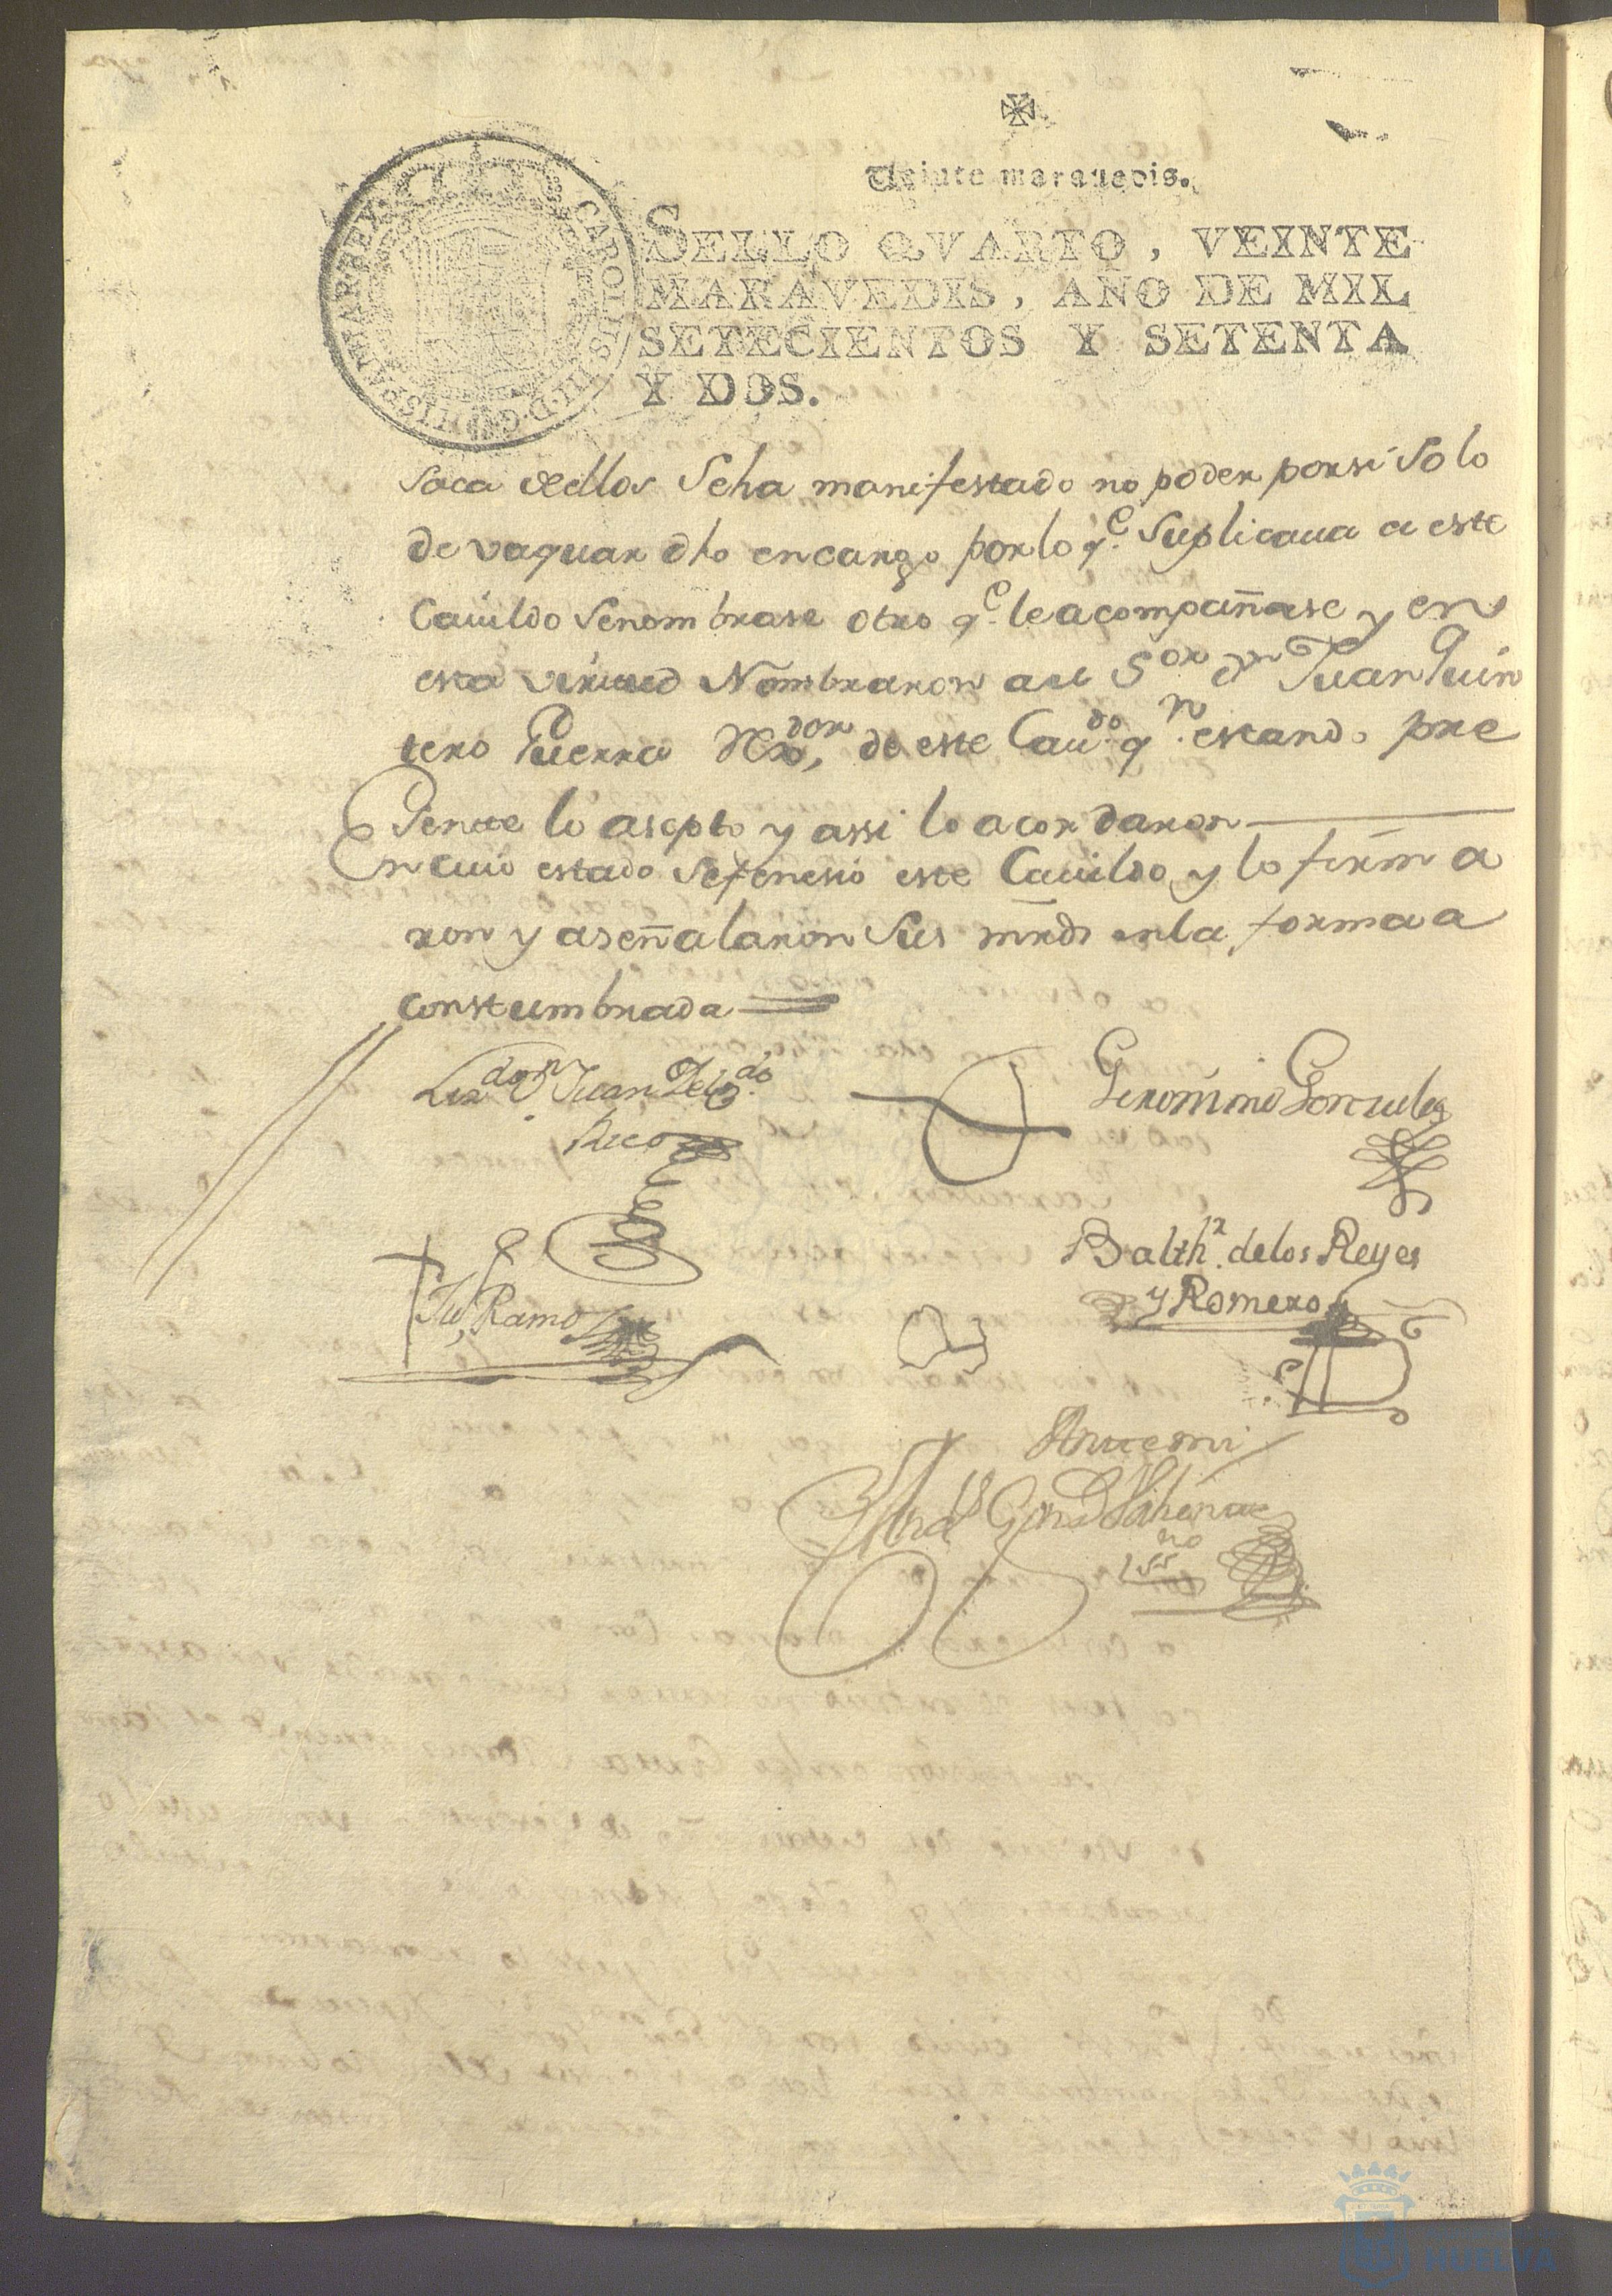 Veinte marauedis.
CAROLUS III D G HISPANIAR REX
SELLO QVARTO, VEINTE
MARAVEDIS, AÑO DE MIL
SETECIENTOS Y SETENTA
Y DOS.
saca dellos Seha manifestado no poder porsi Solo
de vaquar dho encargo porlo q.e Suplicaua a este
Cauildo Senombrase otro q.e leacompañase y en
esta virtud Nombraron a el S.or d.n Juan Quin
tero Guerra Rxdor, de este Cau.do q.n estando pre
sente lo asepto y assi lo acordaron
En cuio estado sefenesio este Cauildo, y lo firma
ron y aseñalaron Sus mrds enla forma a
constumbrada
Lizdo Dn Juan Delg.do
Rico
Geronimo Gonzales
Balthr. delos Reyes
y Romero
Ju, Ramos
Antemi
HUELVA